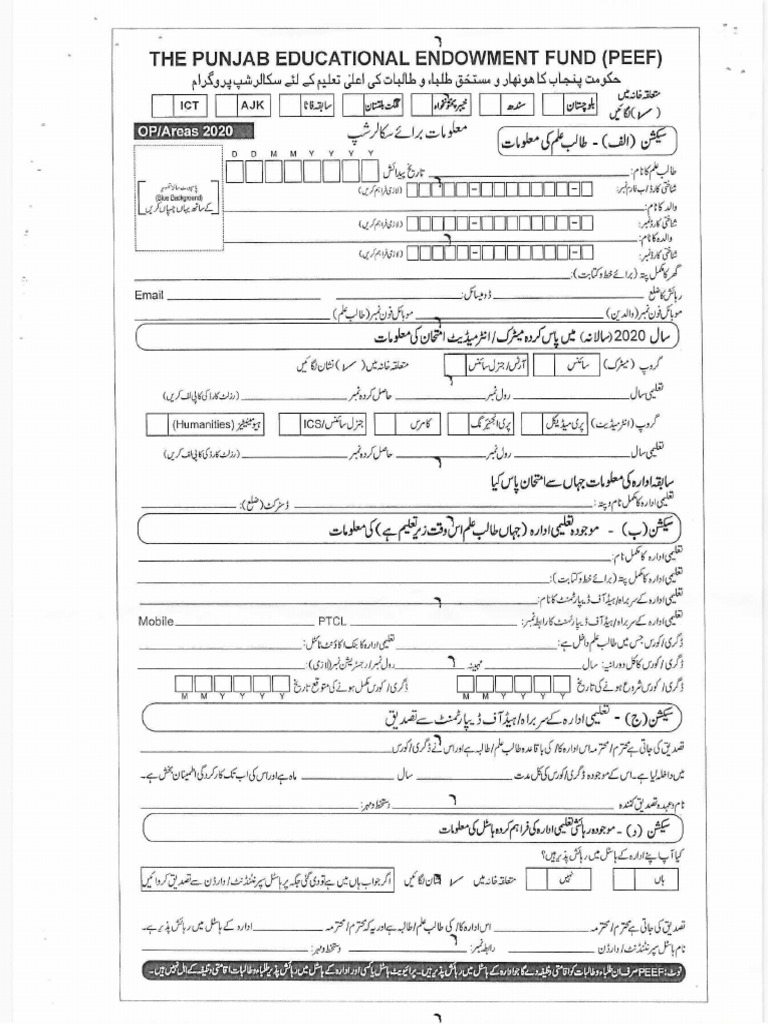 THE PUNJAB EDUCATIONAL ENDOWMENT FUND (PEEF)
حکومت پنجاب کا ہونہار و مستحق طلباء و طالبات کی اعلیٰ تعلیم کے لئے سکالرشپ پروگرام
متعلقہ خانہ میں (✓) لگائیں
بلوچستان سندھ خیبر پختونخواہ گلگت بلتستان سابقہ فاٹا AJK ICT
OP/Areas 2020
معلومات برائے سکالرشپ
سیکشن (الف) - طالب علم کی معلومات
پاسپورٹ سائز تصویر
(Blue Background)
کے ساتھ یہاں چسپاں کریں
D D M M Y Y Y Y
طالب علم کا نام: تاریخ پیدائش
شناختی کارڈ/ب فارم نمبر: - - (لازمی فراہم کریں)
والد کا نام:
شناختی کارڈ نمبر: - - (لازمی فراہم کریں)
والدہ کا نام:
شناختی کارڈ نمبر: - - (لازمی فراہم کریں)
گھر کا مکمل پتہ (برائے خط و کتابت):
رہائش کا ضلع ڈومیسائل: Email
موبائل فون نمبر (والدین) موبائل فون نمبر (طالب علم)
سال 2020 (سالانہ) میں پاس کردہ میٹرک/انٹرمیڈیٹ امتحان کی معلومات
گروپ (میٹرک) سائنس آرٹس/جنرل سائنس متعلقہ خانہ میں (✓) نشان لگائیں
تعلیمی سال رول نمبر حاصل کردہ نمبر (رزلٹ کارڈ کی کاپی لف کریں)
گروپ (انٹرمیڈیٹ) پری میڈیکل پری انجینئرنگ کامرس جنرل سائنس/ICS ہیومینٹیز (Humanities)
تعلیمی سال رول نمبر حاصل کردہ نمبر (رزلٹ کارڈ کی کاپی لف کریں)
سابقہ ادارہ کی معلومات جہاں سے امتحان پاس کیا
تعلیمی ادارہ کا مکمل نام و پتہ: ڈسٹرکٹ (ضلع):
سیکشن (ب) - موجودہ تعلیمی ادارہ (جہاں طالب علم اس وقت زیر تعلیم ہے) کی معلومات
تعلیمی ادارہ کا مکمل نام:
تعلیمی ادارہ کا مکمل پتہ (برائے خط و کتابت):
تعلیمی ادارہ کے سربراہ/ہیڈ آف ڈیپارٹمنٹ کا نام:
تعلیمی ادارہ کے سربراہ/ہیڈ آف ڈیپارٹمنٹ کا رابطہ نمبر: PTCL Mobile
ڈگری/کورس جس میں طالب علم داخل ہے: تعلیمی ادارہ کا بنک اکاؤنٹ ٹائٹل:
ڈگری/کورس کا کل دورانیہ: سال مہینہ رول نمبر/رجسٹریشن نمبر (لازمی):
ڈگری/کورس شروع ہونے کی تاریخ ڈگری/کورس مکمل ہونے کی متوقع تاریخ
M M Y Y Y Y M M Y Y Y Y
سیکشن (ج) - تعلیمی ادارہ کے سربراہ/ہیڈ آف ڈیپارٹمنٹ سے تصدیق
تصدیق کی جاتی ہے محترم/محترمہ اس ادارہ کا/کی باقاعدہ طالب علم/طالبہ ہے اور اس نے ڈگری/کورس
میں داخلہ لیا ہے۔ اس کے موجودہ ڈگری/کورس کی کل مدت سال ماہ ہے اور اس کی اب تک کارکردگی اطمینان بخش ہے۔
نام و عہدہ تصدیق کنندہ دستخط و مہر:
سیکشن (د) - موجودہ رہائشی تعلیمی ادارہ کی فراہم کردہ ہاسٹل کی معلومات
کیا آپ اپنے ادارہ کے ہاسٹل میں رہائش پذیر ہیں؟
ہاں نہیں متعلقہ خانہ میں ✓ نشان لگائیں اگر جواب ہاں میں ہے تو دی گئی جگہ پر ہاسٹل سپرنٹنڈنٹ/وارڈن سے تصدیق کروائیں
تصدیق کی جاتی ہے محترم/محترمہ اس ادارہ کا/کی طالب علم/طالبہ ہے اور یہ کہ محترم/محترمہ ادارہ کے ہاسٹل میں رہائش پذیر ہے۔
نام ہاسٹل سپرنٹنڈنٹ/وارڈن رابطہ نمبر: دستخط و مہر:
نوٹ: PEEF صرف ان طلباء و طالبات کو اقامتی وظیفہ دے گا جو ادارہ کے ہاسٹل میں رہائش پذیر ہیں۔ پرائیویٹ ہاسٹل یا کسی اور ادارہ کے ہاسٹل میں رہائش پذیر طلباء و طالبات اقامتی وظیفہ کے اہل نہیں ہیں۔